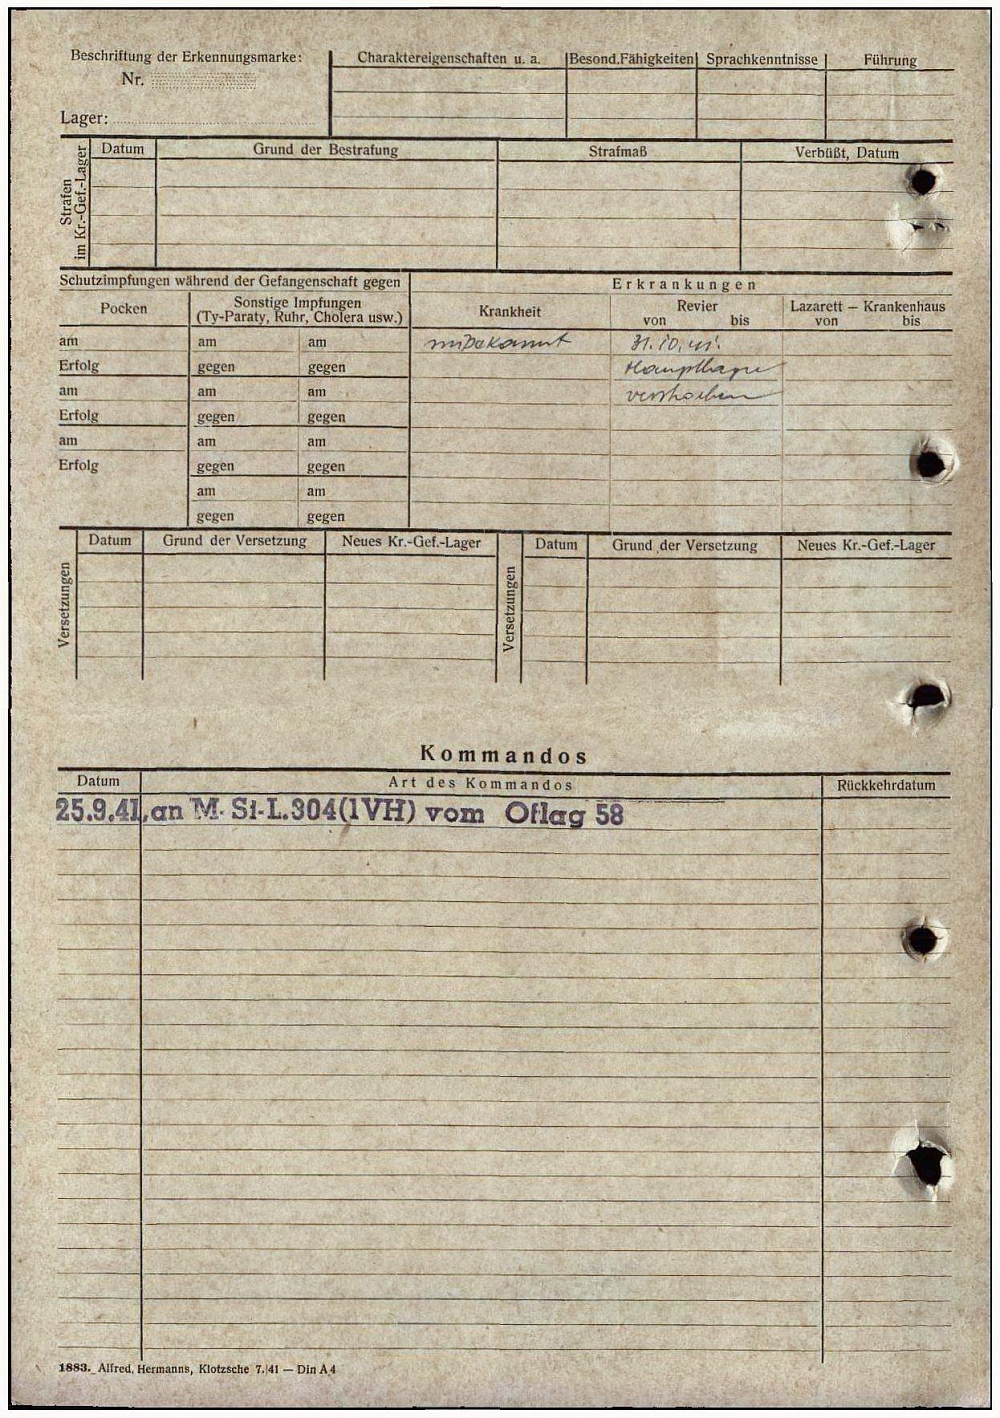 Beschriftung der Erkennungsmarke:
Nr.
Lager:
Charaktereigenschaften u. a.
Besond.Fähigkeiten
Sprachkenntnisse
Führung
Strafen
im Kr.-Gef.-Lager
Datum
Grund der Bestrafung
Strafmaß
Verbüßt, Datum
Schutzimpfungen während der Gefangenschaft gegen
Erkrankungen
Pocken
Sonstige Impfungen
(Ty-Paraty, Ruhr, Cholera usw.)
Krankheit
Revier
von bis
Lazarett — Krankenhaus
von bis
am am am unbekannt 31.10.41.
Erfolg gegen gegen Hauptlager
am am am verstorben
Erfolg gegen gegen
am am am
Erfolg gegen gegen
am am
gegen gegen
Versetzungen
Datum
Grund der Versetzung
Neues Kr.-Gef.-Lager
Versetzungen
Datum
Grund der Versetzung
Neues Kr.-Gef.-Lager
Kommandos
Datum
Art des Kommandos
Rückkehrdatum
25.9.41, an M-St-L.304(IVH) vom Oflag 58
1883. Alfred Hermanns, Klotzsche 7. 41 — Din A 4